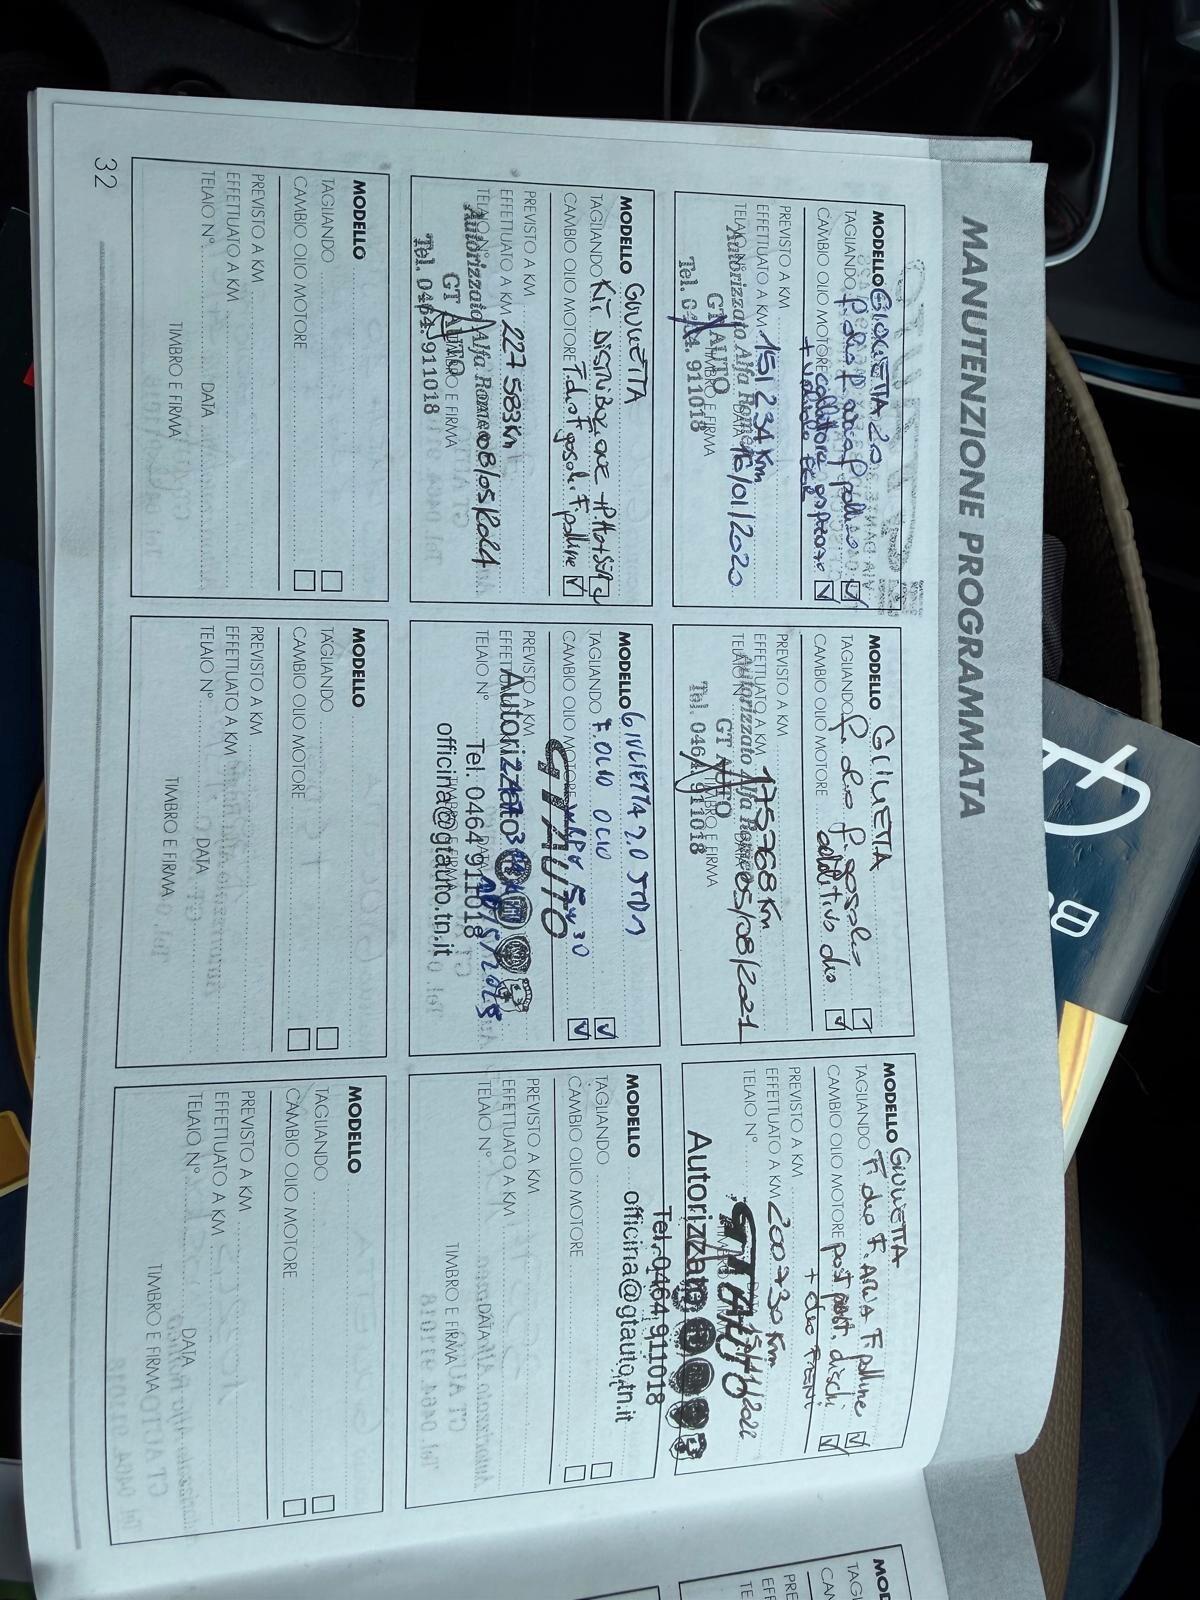 MANUTENZIONE PROGRAMMATA
MODELLO GIULIETTA 2.0
TAGLIANDO F. olio F. aria F. polline
CAMBIO OLIO MOTORE collettore
+ valvola EGR
PREVISTO A KM
EFFETTUATO A KM 151 234 Km
TELAIO N° DATA 16/01/2020
Autorizzato Alfa Romeo
TIMBRO E FIRMA
GT AUTO
Tel. 0464. 911018
MODELLO GIULIETTA
TAGLIANDO F. olio F. gasolio
CAMBIO OLIO MOTORE additivo
PREVISTO A KM
EFFETTUATO A KM 175768 Km
TELAIO N° DATA 05/08/2021
Autorizzato Alfa Romeo
TIMBRO E FIRMA
GT AUTO
Tel. 0464 911018
MODELLO GIULIETTA
TAGLIANDO F. olio F. ARIA F. polline
CAMBIO OLIO MOTORE past post. dischi
PREVISTO A KM
EFFETTUATO A KM 200730 Km
TELAIO N° /11/2022
GTAUTO
Autorizzato
Tel. 0464 911018
officina@gtauto.tn.it
MODELLO GIULIETTA
TAGLIANDO KIT DISTRIBUZIONE + P.H2O
CAMBIO OLIO MOTORE F. olio F. gasolio F. polline
PREVISTO A KM
EFFETTUATO A KM 227 583 Km
TELAIO N° 08/05/2024
Autorizzato Alfa Romeo
TIMBRO E FIRMA
GT AUTO
Tel. 0464. 911018
MODELLO GIULIETTA 2.0 JTDM
TAGLIANDO F. OLIO OLIO
CAMBIO OLIO MOTORE 5W30
PREVISTO A KM
EFFETTUATO A KM
TELAIO N° DATA /5/2025
GTAUTO
Autorizzato
TIMBRO E FIRMA
Tel. 0464 911018
officina@gtauto.tn.it
MODELLO
TAGLIANDO
CAMBIO OLIO MOTORE
PREVISTO A KM
EFFETTUATO A KM
TELAIO N° DATA
TIMBRO E FIRMA
MODELLO
TAGLIANDO
CAMBIO OLIO MOTORE
PREVISTO A KM
EFFETTUATO A KM
TELAIO N° DATA
TIMBRO E FIRMA
MODELLO
TAGLIANDO
CAMBIO OLIO MOTORE
PREVISTO A KM
EFFETTUATO A KM
TELAIO N° DATA
TIMBRO E FIRMA
MODELLO
TAGLIANDO
CAMBIO OLIO MOTORE
PREVISTO A KM
EFFETTUATO A KM
TELAIO N° DATA
TIMBRO E FIRMA
32